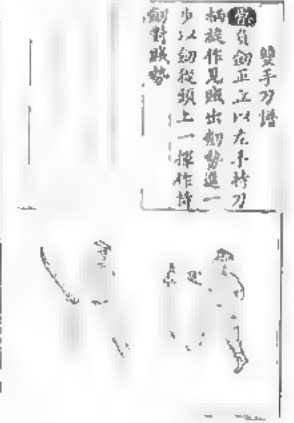 雙手刀譜
負劍正立以左手持刀
柄旋作見賊出劍勢進一
步以劍從頭上一揮作持
劍對賊勢